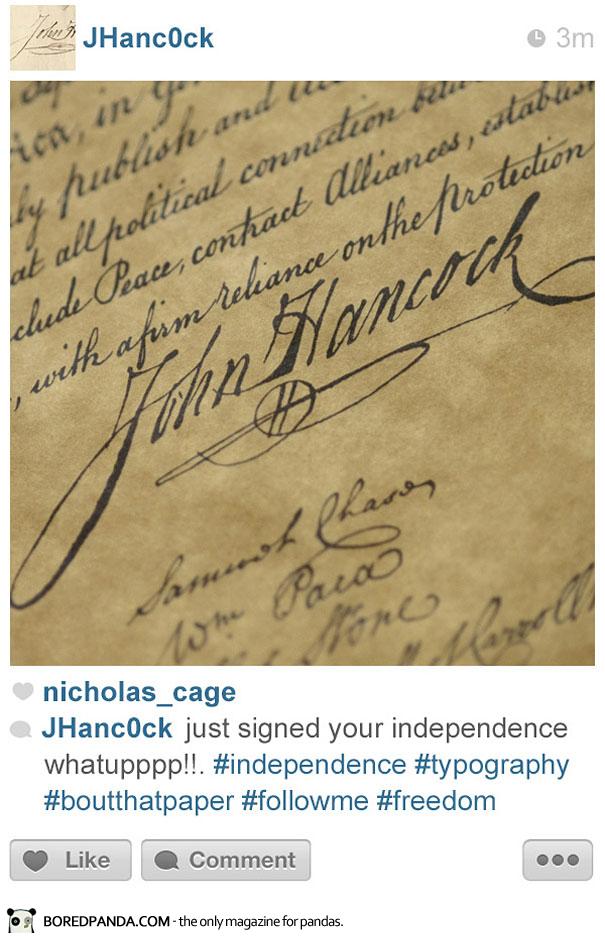 JHanc0ck
3m
by publish and
at all political connection
clude Peace, contract Alliances, establish
, with a firm reliance on the protection
John Hancock
Samuel Chase
Wm Paca
Stone
nicholas_cage
JHanc0ck just signed your independence
whatupppp!!. #independence #typography
#boutthatpaper #followme #freedom
Like
Comment
BOREDPANDA.COM - the only magazine for pandas.